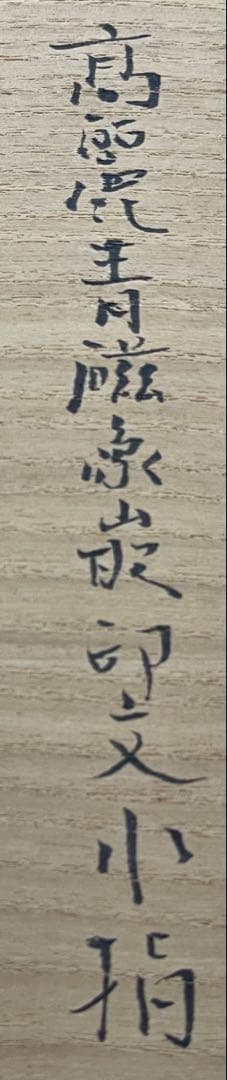 高麗青磁象嵌印文水指